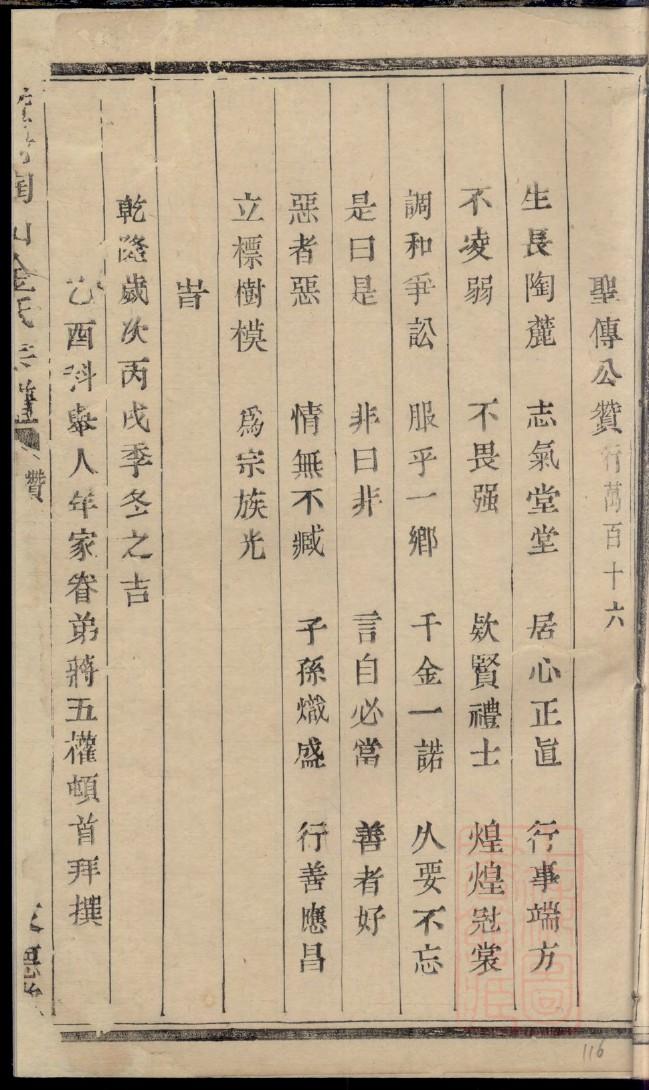 聖傳公贊行萬百十六
生長陶麓 志氣堂堂 居心正直 行事端方
不凌弱 不畏强 欵賢禮士 煌煌冠裳
調和爭訟 服乎一鄉 千金一諾 久要不忘
是曰是 非曰非 言自必當 善者好
惡者惡 情無不臧 子孫熾盛 行善應昌
立標樹模 爲宗族光
旹
乾隆歲次丙戌季冬之吉
乙酉科舉人年家眷弟蔣五權頓首拜撰
山金氏宗譜 贊
116